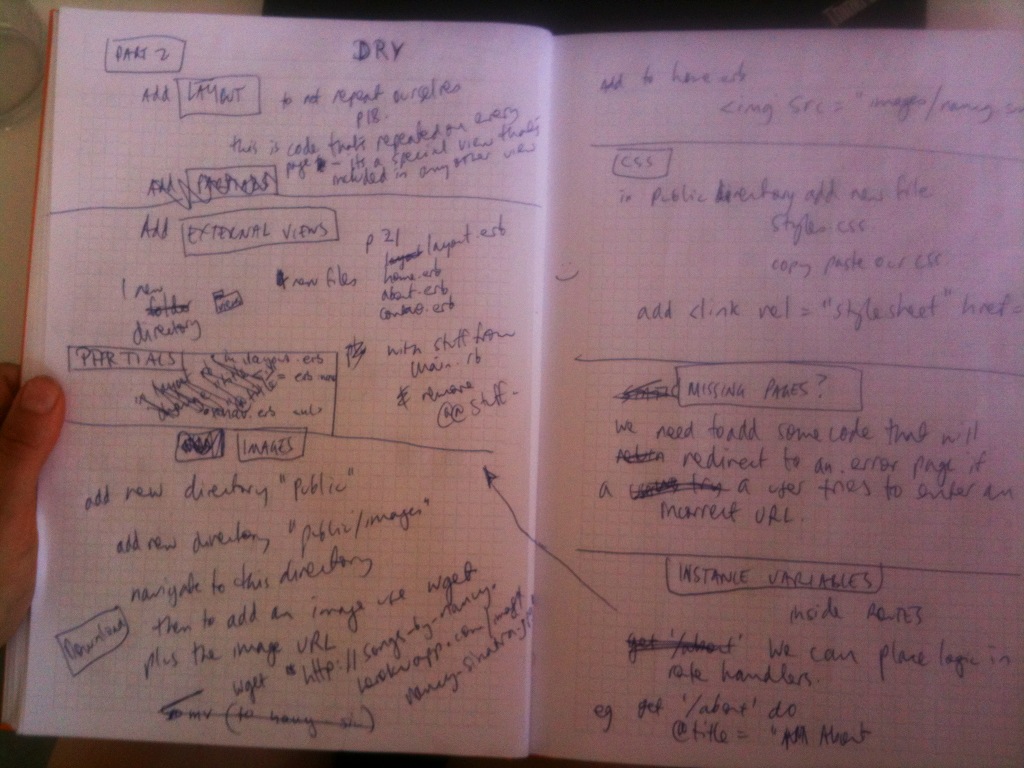 PART 2
DRY
Add LAYOUT to not repeat ourselves
p18.
this is code that's repeated on every
page - its a special view that's
included in any other view
Add PARTIALS
Add EXTERNAL VIEWS
p 21
1 new
directory
4 new files
layout layout.erb
home.erb
about.erb
contact.erb
with stuff from
main.rb
& remove
@@ stuff.
PARTIALS
IMAGES
add new directory "public"
add new directory "public/images"
navigate to this directory
then to add an image use wget
plus the image URL
Download
wget http://songs-by-nancy-
Add to home.erb
<img src = "images/nancy
CSS
in public directory add new file
styles.css
copy paste our css
add <link rel = "stylesheet" href=
MISSING PAGES?
we need to add some code that will
return redirect to an error page if
a a user tries to enter an
incorrect URL.
INSTANCE VARIABLES
inside ROUTES
get '/about' We can place logic in
route handlers.
eg get '/about' do
@title = "All About